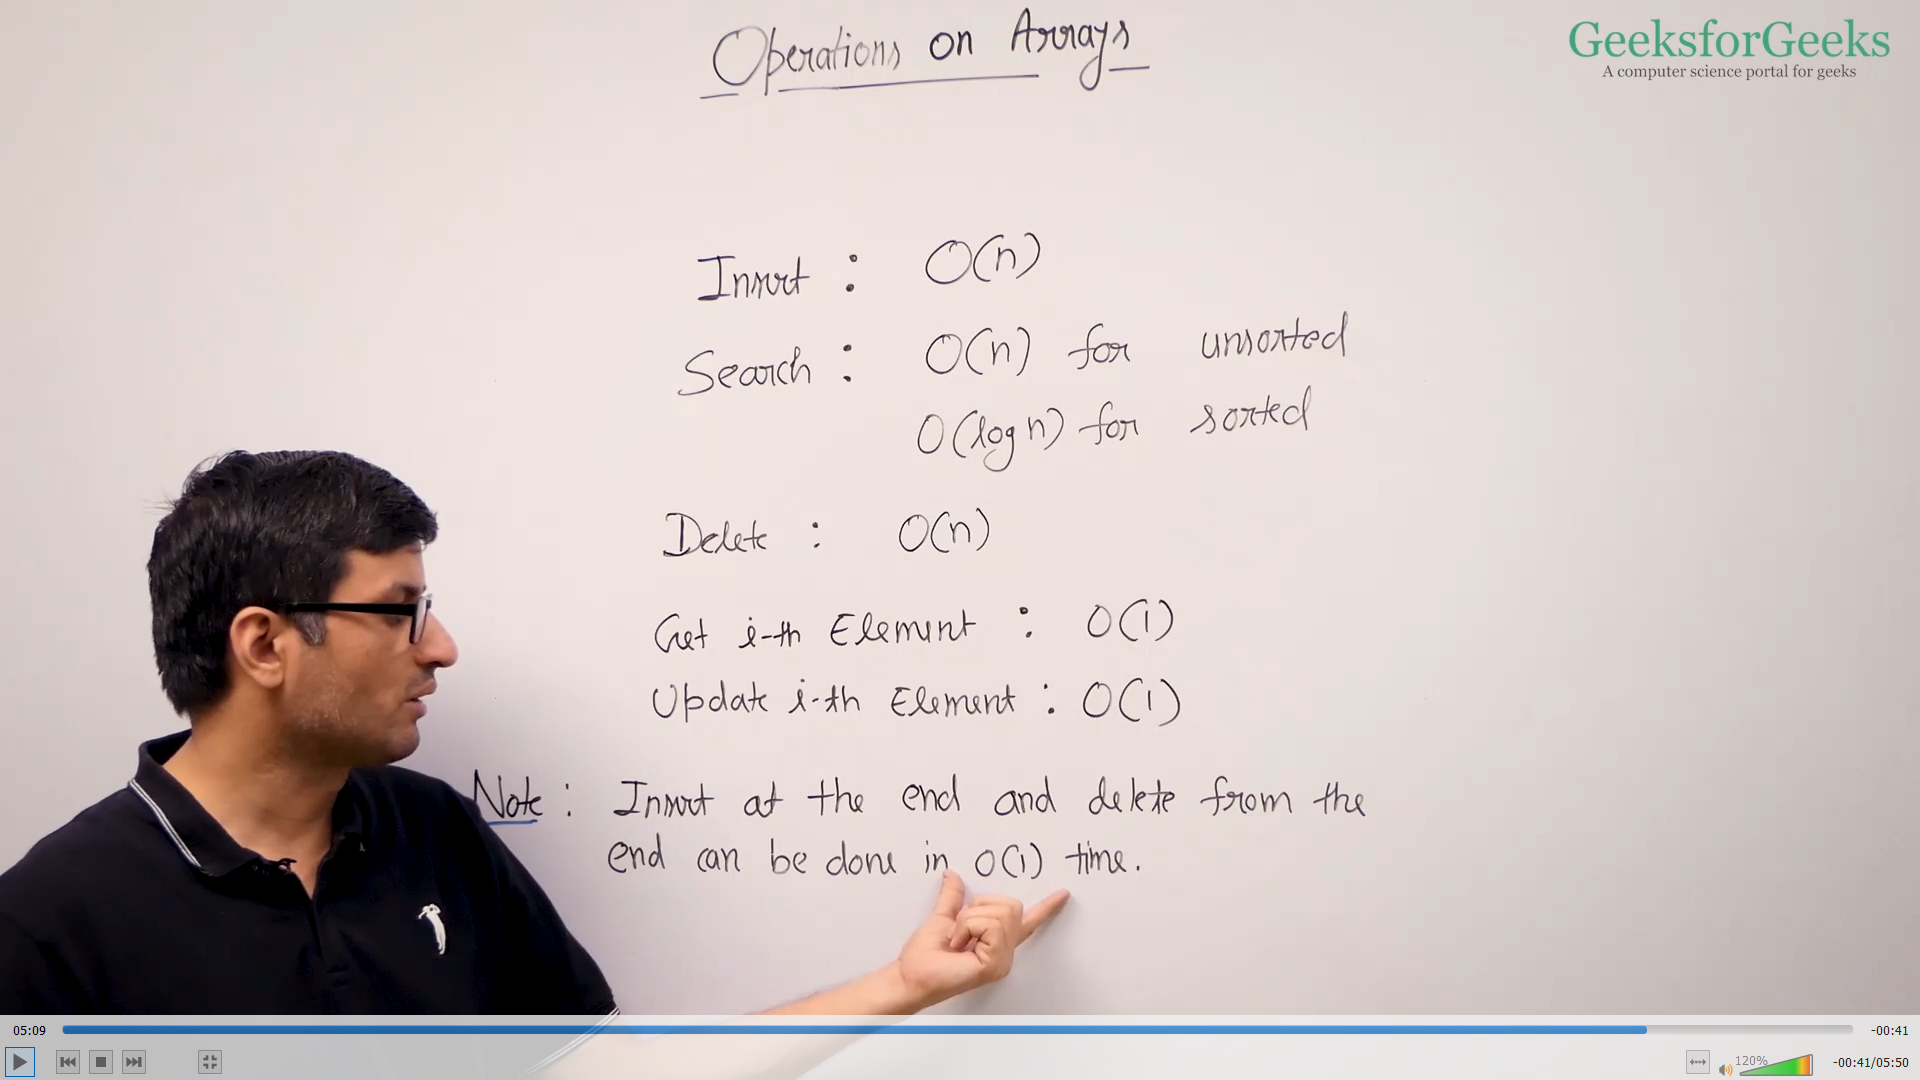 Operations on Arrays
GeeksforGeeks
A computer science portal for geeks
Insert : O(n)
Search : O(n) for unsorted
O(log n) for sorted
Delete : O(n)
Get i-th Element : O(1)
Update i-th Element : O(1)
Note : Insert at the end and delete from the
end can be done in O(1) time.
05:09
-00:41
120%
-00:41/05:50